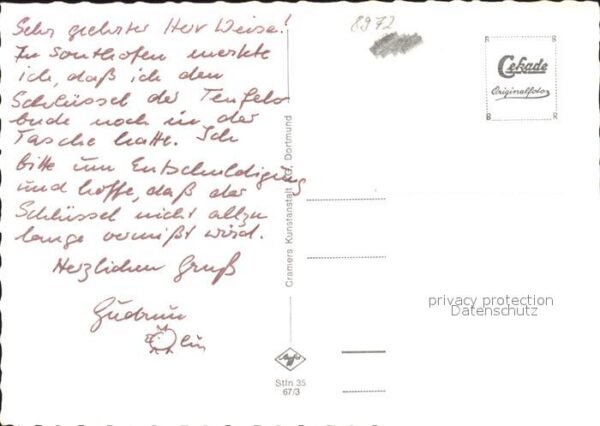 Sehr geehrter Herr Weise!
In Sonthofen merkte
ich, daß ich den
Schlüssel der Teufels
bude noch in der
Tasche hatte. Ich
bitte um Entschuldigung
und hoffe, daß der
Schlüssel nicht allzu
lange vermißt wird.
Herzlichen Gruß
Gudrun
8972
Cekade
Originalfoto
Cramers Kunstanstalt KG, Dortmund
privacy protection
Datenschutz
Agfa
Stfn 35
67/3